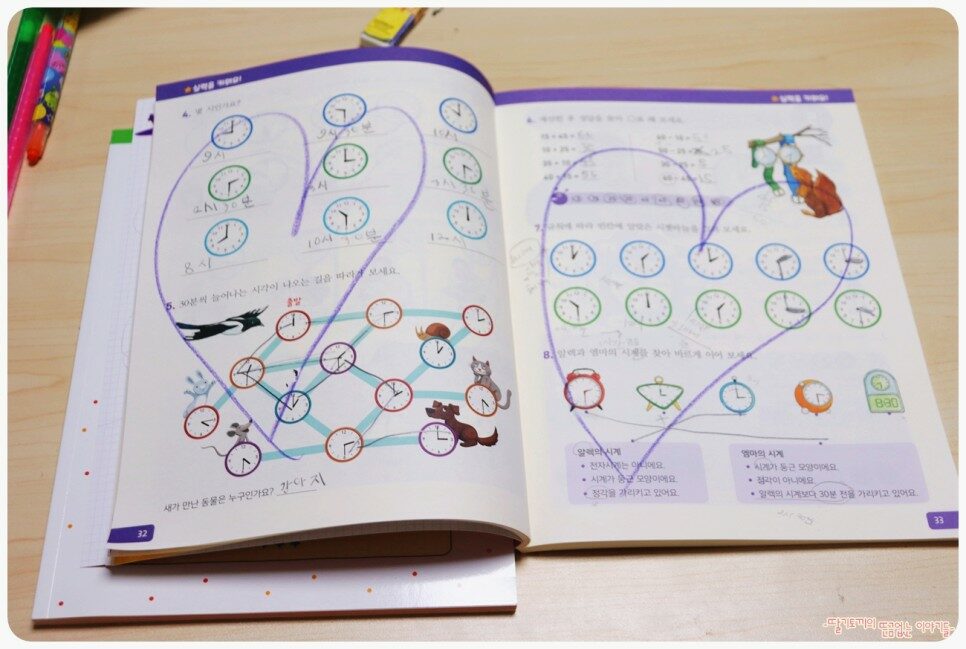 실력을 키워요!
4. 몇 시인가요?
9시
9시 30분
10시
2시 30분
3시
8시
10시 30분
12시
5. 30분씩 늘어나는 시각이 나오는 길을 따라가 보세요.
출발
새가 만난 동물은 누구인가요? 강아지
32
실력을 키워요!
6. 계산한 후 정답을 찾아 ○표 해 보세요.
7. 규칙에 따라 빈칸에 알맞은 시곗바늘을 보세요.
8. 알렉과 엠마의 시계를 찾아 바르게 이어 보세요.
8:30
알렉의 시계
• 전자시계는 아니에요.
• 시계가 둥근 모양이에요.
• 정각을 가리키고 있어요.
엠마의 시계
• 시계가 둥근 모양이에요.
• 정각이 아니에요.
• 알렉의 시계보다 30분 전을 가리키고 있어요.
33
딸기토끼의 뜬금없는 이야기들